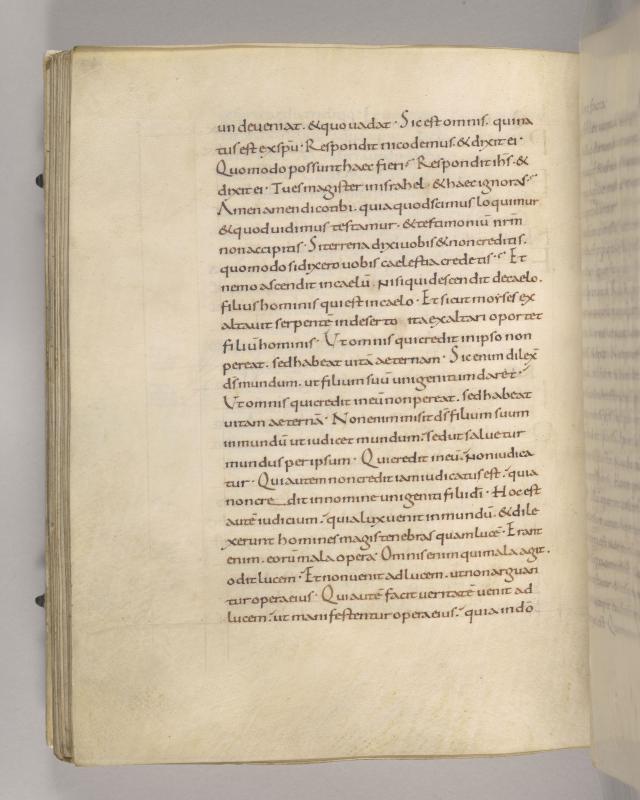 un deveniat. & quo vadat · Sic est omnis. qui na
tus est ex spū · Respondit nicodemus. & dixit ei ·
Quomodo possunt haec fieri · Respondit ihs. &
dixit ei · Tu es magister in israhel · & haec ignoras ·
Amen amen dico tibi. quia quod scimus loquimur
& quod vidimus testamur. & testimoniū nr̄m
non accipitis · Si terrena dixi vobis & non creditis.
quomodo si dixero vobis caelestia credetis · Et
nemo ascendit in caelū. nisi qui descendit de caelo.
filius hominis qui est in caelo · Et sicut moyses ex
altavit serpentē in deserto ita exaltari oportet
filiū hominis · Ut omnis qui credit in ipso non
pereat. sed habeat vitā aeternam · Sic enim dilex̄
ds̄ mundum. ut filium suū unigenitum daret ·
Ut omnis qui credit in eū non pereat. sed habeat
vitam aeternā · Non enim misit ds̄ filium suum
in mundū ut iudicet mundum. sed ut salvetur
mundus per ipsum · Qui credit in eū. non iudica
tur · Qui autem non credit iam iudicatus est. quia
non cre dit in nomine unigeniti filii dī · Hoc est
autē iudicium. quia lux venit in mundū. & dile
xerunt homines magis tenebras quam lucē · Erant
enim. eorū mala opera · Omnis enim qui mala agit.
odit lucem · Et non venit ad lucem. ut non arguan
tur opera eius · Qui autē facit veritatē venit ad
lucem. ut manifestentur opera eius. quia in dō